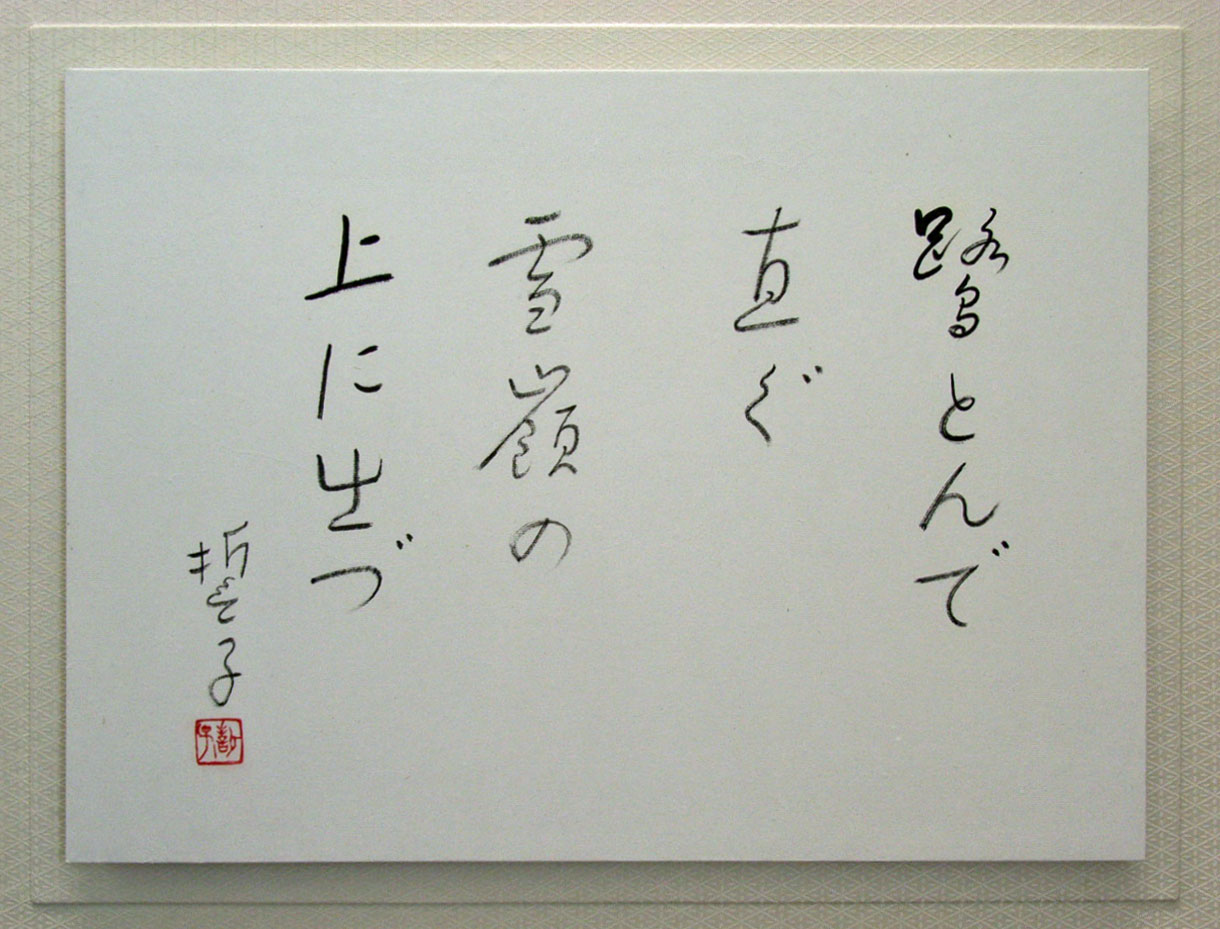 鷺とんで
直ぐ
雪嶺の
上に出づ
誓子